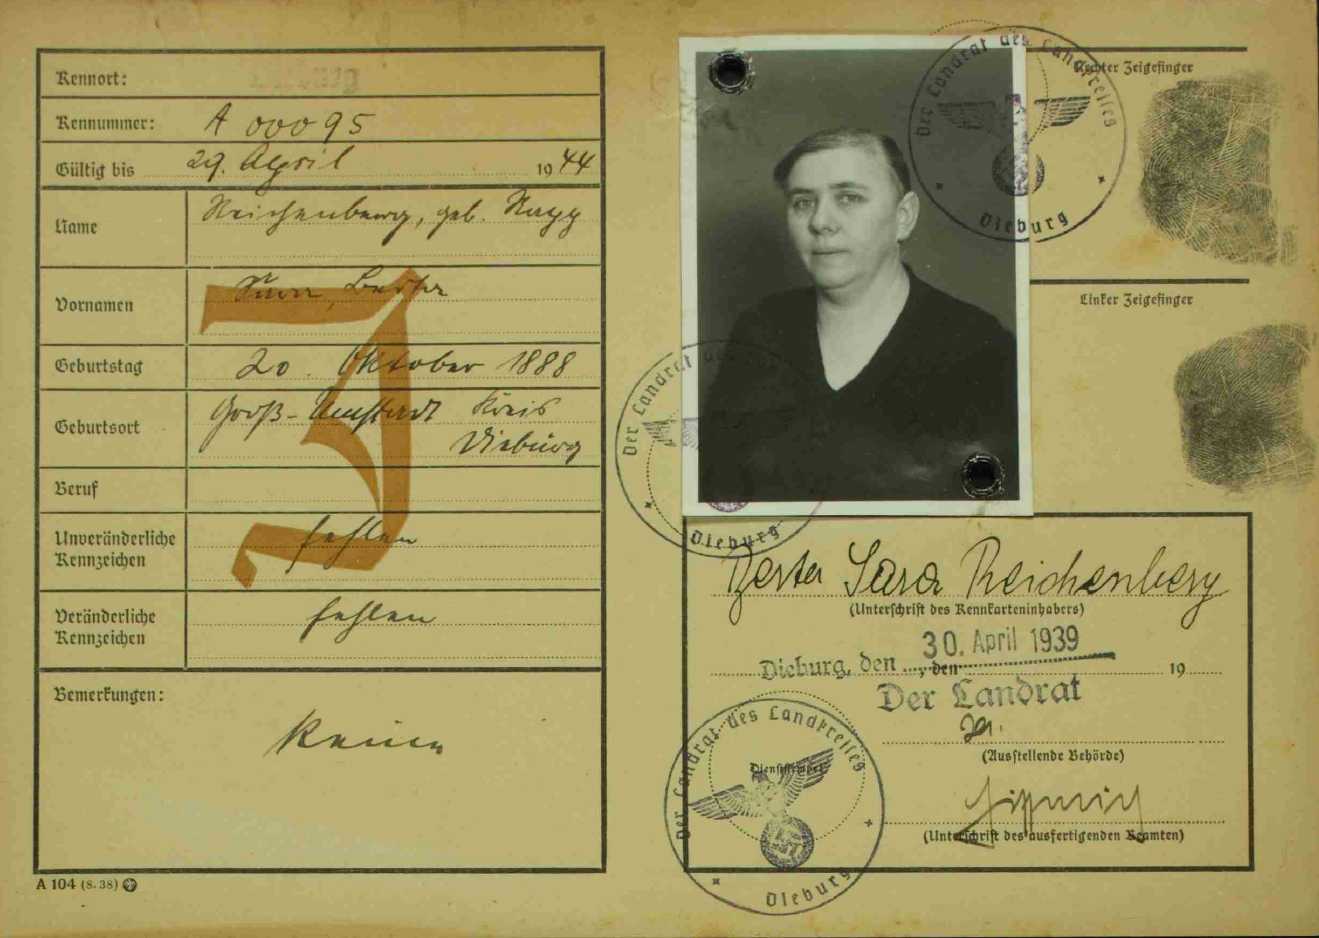 Kennort: Dieburg
Kennummer: A 00095
Gültig bis 29. April 1944
Name Reichenberg, geb.
Vornamen Sara, Berta
Geburtstag 20. Oktober 1888
Geburtsort Groß-Umstadt Kreis
Dieburg
Beruf
Unveränderliche
Kennzeichen fehlen
Veränderliche
Kennzeichen fehlen
Bemerkungen:
Keine
J
A 104 (8. 38)
Rechter Zeigefinger
Der Landrat des Landkreises
Dieburg
Linker Zeigefinger
Der Landrat des
Dieburg
Sara Reichenberg
(Unterschrift des Kennkarteninhabers)
30. April 1939
Dieburg, den , den 19
Der Landrat
(Ausstellende Behörde)
Der Landrat des Landkreises
Dienststempel
Dieburg
(Unterschrift des ausfertigenden Beamten)